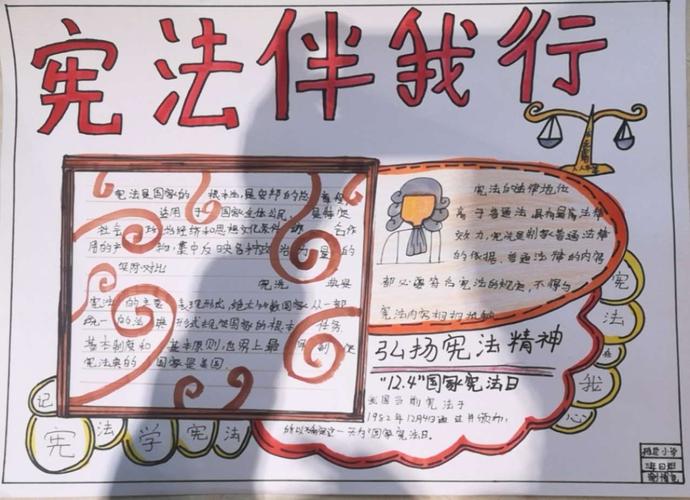 宪法伴我行
宪法是国家的根本法,是安邦的总章程,
适用于国家全体公民,是特定
社会政治经济和思想文化条件综合作
用的产物,集中反映各种政治力量的
实际对比
宪法
宪法的主要表现形式,绝大多数国家以一部
统一的法典形式规定国家的根本任务
基本制度和基本原则,世界上最
宪法典的国家是美国。
宪法的法律地位
高于普通法,具有最高法律
效力,宪法是制定普通法律
的依据,普通法律的内容
都必须符合宪法的规定,不得与
宪法内容相抵触
弘扬宪法精神
"12.4"国家宪法日
我国当前宪法于
1982年12月4日通过并颁布,
所以确定这一天为"国家宪法日。
学宪法
宪法在我心
记宪法
小学
班